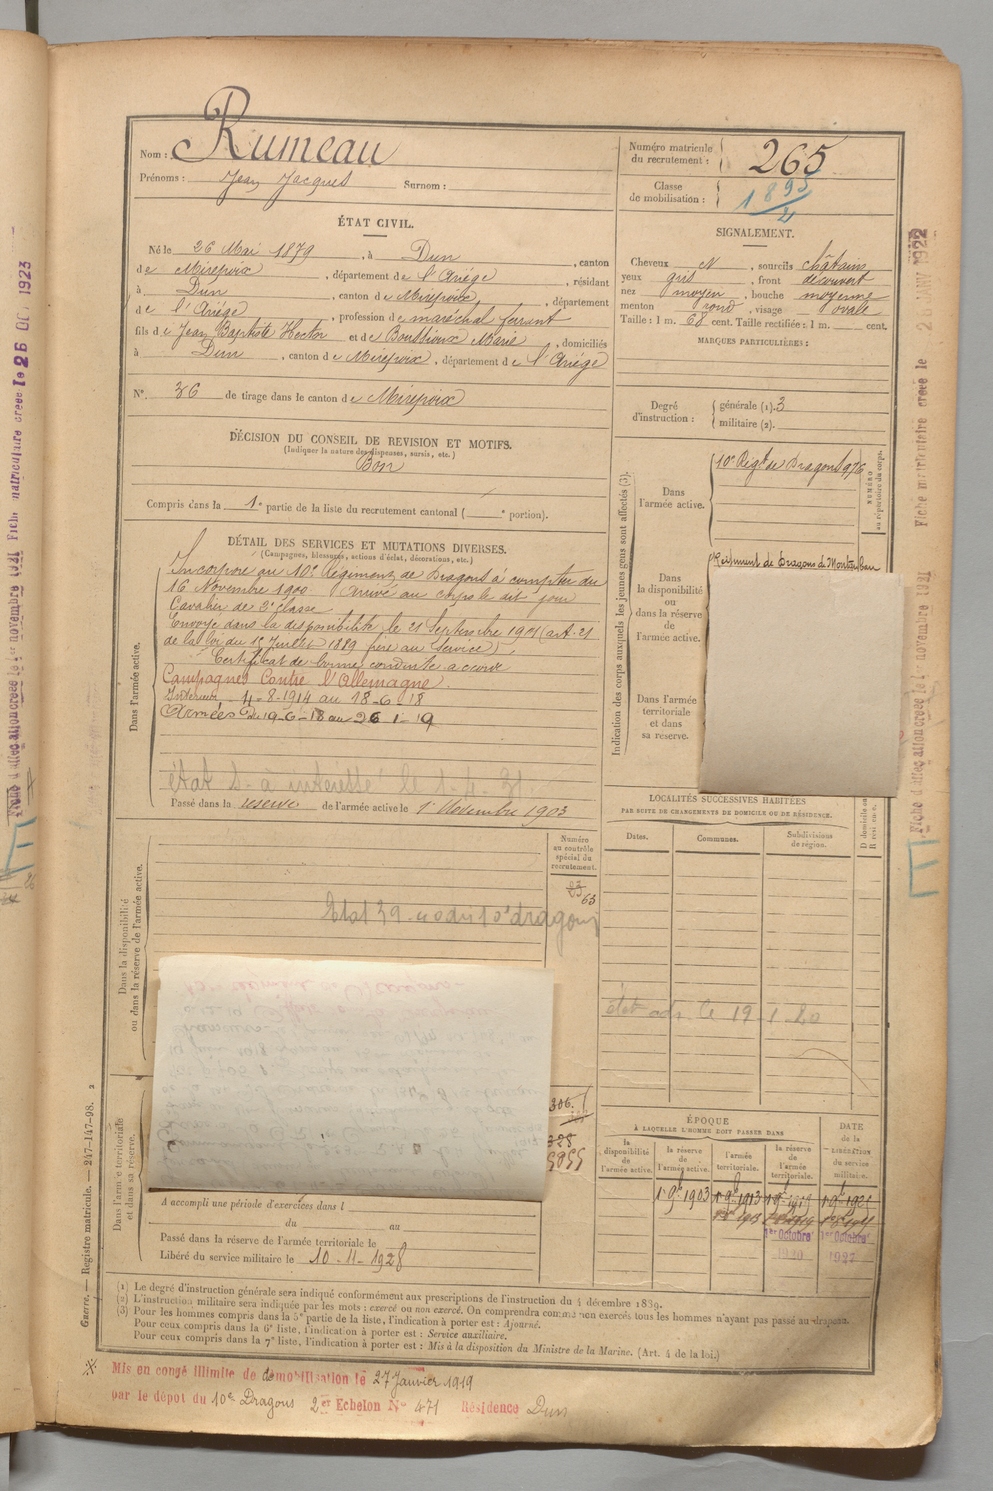 Nom : Rumeau
Prénoms : Jean Jacques Surnom :
Numéro matricule du recrutement : 265
Classe de mobilisation : 1895
ÉTAT CIVIL.
Né le 26 Mai 1879, à Dun, canton
de Mirepoix, département de l'Ariège, résidant
à Dun, canton de Mirepoix, département
de l'Ariège, profession de maréchal ferrant
fils de Jean Baptiste Hector et de Boussioux Marie, domiciliés
à Dun, canton de Mirepoix, département de l'Ariège
N° 36 de tirage dans le canton de Mirepoix
SIGNALEMENT.
Cheveux N, sourcils châtains
yeux gris, front découvert
nez moyen, bouche moyenne
menton rond, visage ovale
Taille : 1 m. 68 cent. Taille rectifiée : 1 m. cent.
MARQUES PARTICULIÈRES :
Degré d'instruction : générale (1). 3
militaire (2).
DÉCISION DU CONSEIL DE REVISION ET MOTIFS.
(Indiquer la nature des dispenses, sursis, etc.)
Bon
Compris dans la 1e partie de la liste du recrutement cantonal ( e portion).
DÉTAIL DES SERVICES ET MUTATIONS DIVERSES.
(Campagnes, blessures, actions d'éclat, décorations, etc.)
Dans l'armée active.
Incorporé au 10e Régiment de Dragons à compter du
16 Novembre 1900. Arrivé au corps le dit jour
Cavalier de 2e classe
Envoyé dans la disponibilité le 21 Septembre 1901 (art. 21
de la loi du 15 Juillet 1889 frère au Service)
Certificat de bonne conduite accordé
Campagnes Contre l'Allemagne
Intérieur 4-8-1914 au 18-6-18
Armées du 19-6-18 au 26 1-19
état S. à intéressé le 1 4. 31.
Passé dans la réserve de l'armée active le 1er Novembre 1903
Indication des corps auxquels les jeunes gens sont affectés (3).
Dans l'armée active.
10e Régt de Dragons 976
NUMÉRO au répertoire du corps.
Dans la disponibilité ou dans la réserve de l'armée active.
Régiment de Dragons de Montauban
Dans l'armée territoriale et dans sa réserve.
LOCALITÉS SUCCESSIVES HABITÉES
PAR SUITE DE CHANGEMENTS DE DOMICILE OU DE RÉSIDENCE.
Dates. Communes. Subdivisions de région.
Dans la disponibilité ou dans la réserve de l'armée active.
Numéro au contrôle spécial du recrutement.
63
Etat 39
dragons
état
le 19-1-20
306.
325
Dans l'armée territoriale et dans sa réserve.
A accompli une période d'exercices dans l
du au
Passé dans la réserve de l'armée territoriale le
Libéré du service militaire le 10-11-1928
ÉPOQUE
À LAQUELLE L'HOMME DOIT PASSER DANS
la disponibilité de l'armée active. la réserve de l'armée active. l'armée territoriale. la réserve de l'armée territoriale.
DATE de la LIBÉRATION du service militaire.
1er Octobre 1er Octobre
1920 1927
(1) Le degré d'instruction générale sera indiqué conformément aux prescriptions de l'instruction du 4 décembre 1889.
(2) L'instruction militaire sera indiquée par les mots : exercé ou non exercé. On comprendra comme non exercés tous les hommes n'ayant pas passé au drapeau.
(3) Pour les hommes compris dans la 5e partie de la liste, l'indication à porter est : Ajourné.
Pour ceux compris dans la 6e liste, l'indication à porter est : Service auxiliaire.
Pour ceux compris dans la 7e liste, l'indication à porter est : Mis à la disposition du Ministre de la Marine. (Art. 4 de la loi.)
Mis en congé illimité de démobilisation le 27 Janvier 1919
par le dépôt du 10e Dragons 2er Echelon N° 471 Résidence Dun
Guerre. — Registre matricule. — 247-147-98. 2
Fiche d'affectation créée le 1er novembre 1921 Fiche matriculaire créée le 26 OC. 1923
Fiche d'affectation créée le 1er novembre 1921 Fiche matriculaire créée le 28 JANV 1922